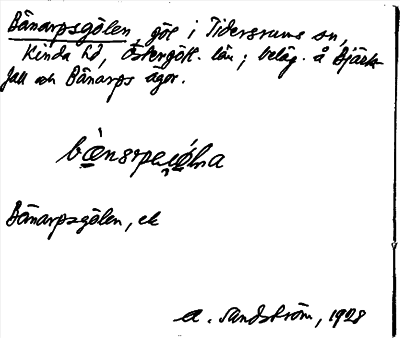 Bänarpsgölen, göl i Tidersrums sn,
Kinda hd, Östergötl. län; beläg. å Bjärk-
fall och Bänarps ägor.
Bänarpsgölen, ek
A. Sandström, 1928